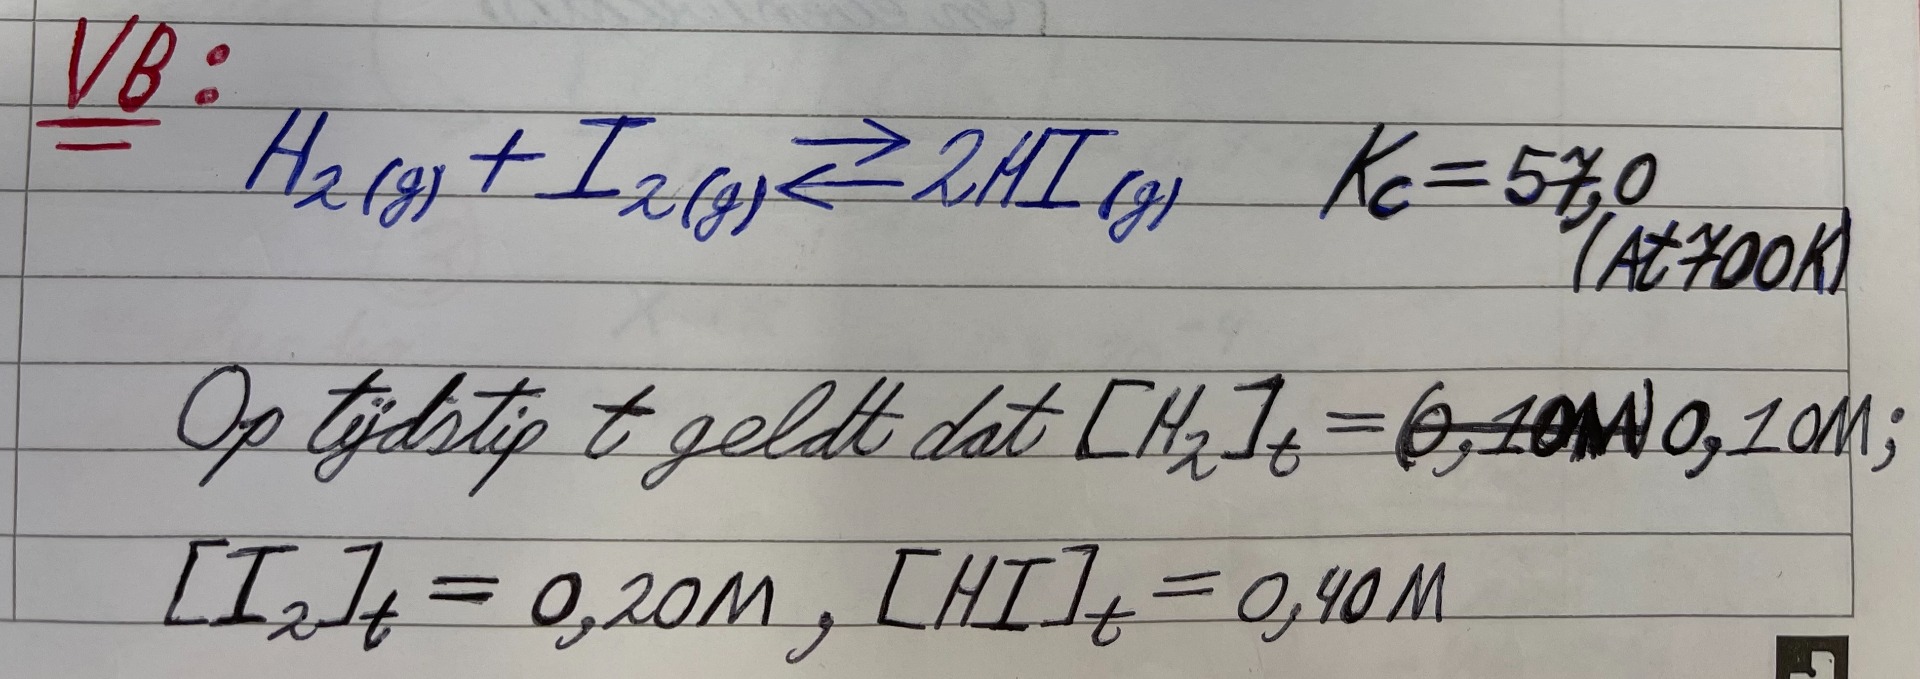 VB:
H₂(g) + I₂(g) ⇄ 2HI(g) Kc = 57,0
(At 700K)
Op tijdstip t geldt dat [H₂]t = (0,10M) 0,10M;
[I₂]t = 0,20M, [HI]t = 0,40M